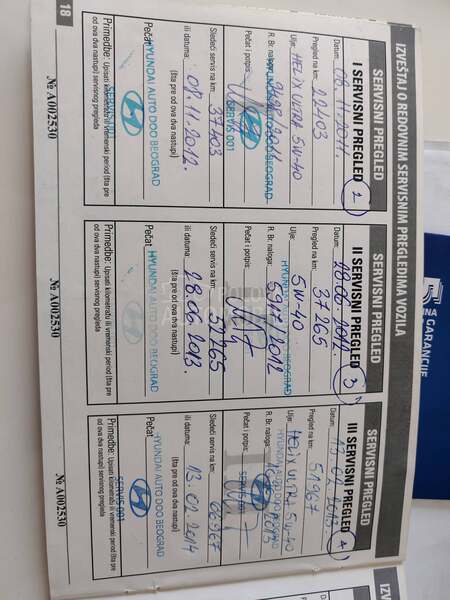 IZVEŠTAJ O REDOVNIM SERVISNIM PREGLEDIMA VOZILA
SERVISNI PREGLED
I SERVISNI PREGLED 2
Datum: 08.11.2011.
Pregled na km: 22403
Ulje: HELIX ULTRA 5W-40
R. Br. naloga:
Pečat i potpis:
SERVIS 001
Sledeći servis na km: 37403
ili datuma: 08.11.2012.
(šta pre od ova dva nastupi)
Pečat:
HYUNDAI AUTO DOO BEOGRAD
SERVIS 001
Primedbe: Upisati kilometražu ili vremenski period (šta pre
od ova dva nastupi) servisnog pregleda
№ A002530
SERVISNI PREGLED
II SERVISNI PREGLED 3
Datum: 28.06.2012.
Pregled na km: 37265
Ulje: 5W-40
R. Br. naloga: 5971/2012
Pečat i potpis:
Sledeći servis na km: 52265
ili datuma: 28.06.2013.
(šta pre od ova dva nastupi)
Pečat:
HYUNDAI AUTO DOO BEOGRAD
Primedbe: Upisati kilometražu ili vremenski period (šta pre
od ova dva nastupi) servisnog pregleda
№ A002530
SERVISNI PREGLED
III SERVISNI PREGLED 4
Datum: 13.02.2013
Pregled na km: 51367
Ulje: HELIX ULTRA 5W-40
R. Br. naloga:
Pečat i potpis:
Sledeći servis na km: 66367
ili datuma: 13.02.2014
(šta pre od ova dva nastupi)
Pečat:
HYUNDAI AUTO DOO BEOGRAD
SERVIS 001
Primedbe: Upisati kilometražu ili vremenski period (šta pre
od ova dva nastupi) servisnog pregleda
№ A002530
18
GARANCIJE